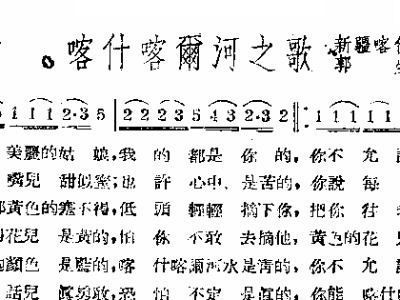 喀什喀爾河之歌 新疆喀什
郭
1 1 1 2·3 5 | 2 2 2 3 5 4 3 2·3 2 ‖: 1 1 1 1 1
美麗的姑娘,我的都是你的,你不允
嘴兒甜似蜜;也許心中、是苦的,你說每
黃色的 不得,低頭輕輕摘下你,把你往
花兒是黃的,怕你不敢去摘他,黃色的花
顏色是藍的,喀什喀爾河水是清的,你不
話兒真勇敢,恐怕不定是眞的,你能喀什